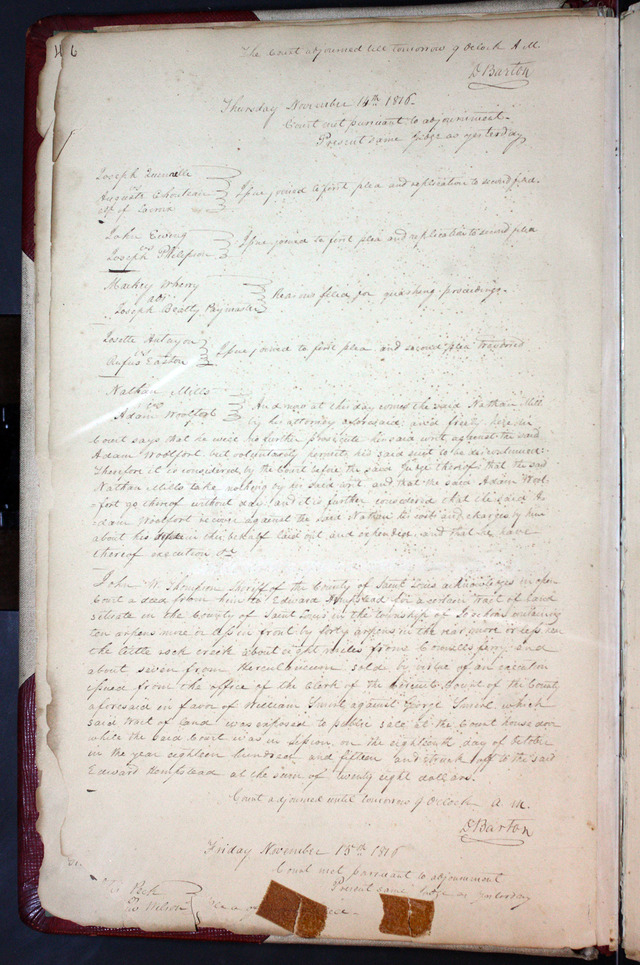 46
The Court adjourned till tomorrow 9 Oclock A.M.
D Barton
Thursday November 14th 1816.
Court met pursuant to adjournment.
Present same Judge as yesterday
Joseph
vs
Auguste Chouteau
of
Issue joined to first plea and replication to second filed.
John Ewing
vs
Joseph Philipson
Issue joined to first plea and replication to second plea
Mackey Wherry
ads
Joseph Beatty Paymaster
Reasons filed for quashing proceedings.
Josette
vs
Rufus Easton
Issue joined to first plea and second plea
Nathan Mills
vs
Adam Woolfort
And now at this day comes the said Nathan Mills
by his attorney aforesaid; and freely here in
Court says that he will no further prosecute his said writ against the said
Adam Woolfort but voluntarily permits his said suit to be discontinued:
Therefore it is considered by the Court before the said Judge thereof that the said
Nathan Mills take nothing by his said writ and that the said Adam Wool-
fort go thereof without day, and it is further considered that the said A-
dam Woolfort recover against the said Nathan his costs and charges by him
about his in this behalf laid out and expended, and that he have
thereof execution &c
John W. Thompson Sheriff of the County of Saint Louis acknowledges in open
Court a deed from him to Edward Hempstead for a certain tract of land
situate in the County of Saint Louis in the township of St containing
ten arpens more or less in front by forty arpens in the rear more or less on
the little rock creek about eight miles from ferry and
about seven from Herculaneum sold by virtue of an execution
issued from the office of the Clerk of the Circuit Court of the County
aforesaid in favor of William against George which
said tract of land was exposed to public sale at the Court house door
while the said Court was in session on the eighteenth day of October
in the year eighteen hundred and fifteen and struck off to the said
Edward Hempstead at the sum of twenty eight dollars.
Court adjourned until tomorrow 9 Oclock A.M.
D Barton
Friday November 15th 1816
Court met pursuant to adjournment
Present same Judge as yesterday
Wilson